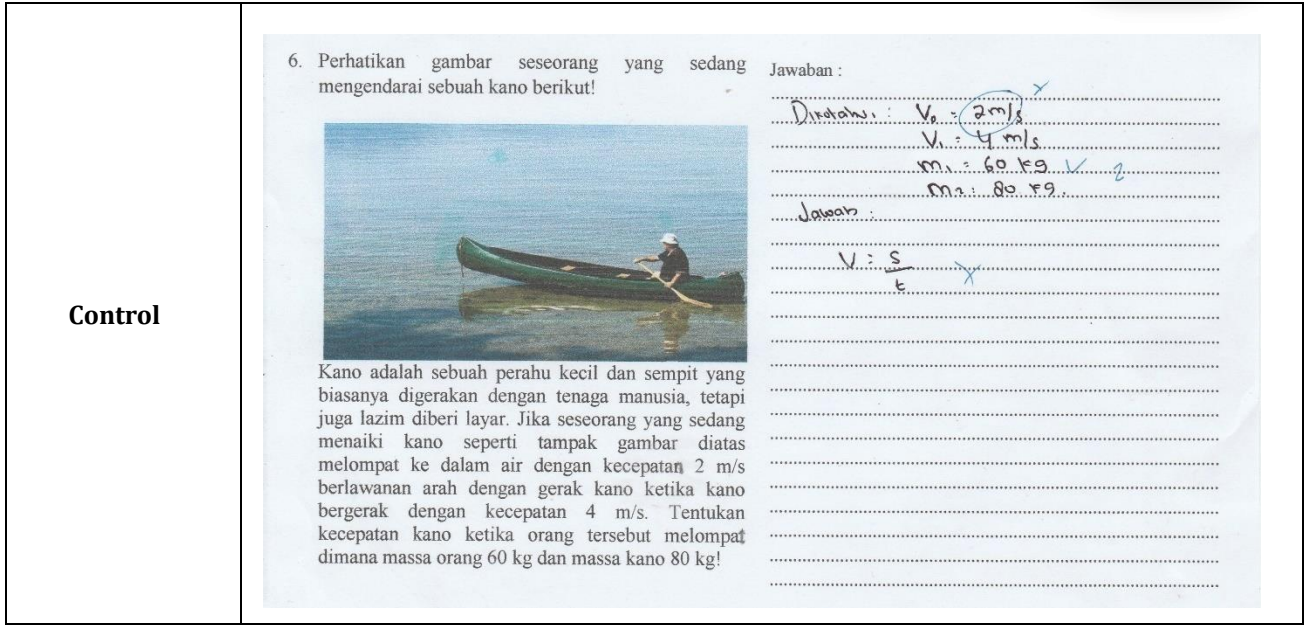 Control
6. Perhatikan gambar seseorang yang sedang
mengendarai sebuah kano berikut!
Kano adalah sebuah perahu kecil dan sempit yang
biasanya digerakan dengan tenaga manusia, tetapi
juga lazim diberi layar. Jika seseorang yang sedang
menaiki kano seperti tampak gambar diatas
melompat ke dalam air dengan kecepatan 2 m/s
berlawanan arah dengan gerak kano ketika kano
bergerak dengan kecepatan 4 m/s. Tentukan
kecepatan kano ketika orang tersebut melompat
dimana massa orang 60 kg dan massa kano 80 kg!
Jawaban :
V₀ = 2m/s
V₁ = 4 m/s
m₁ = 60 kg 2
m₂ : 80 kg.
Jawab :
V = s
t